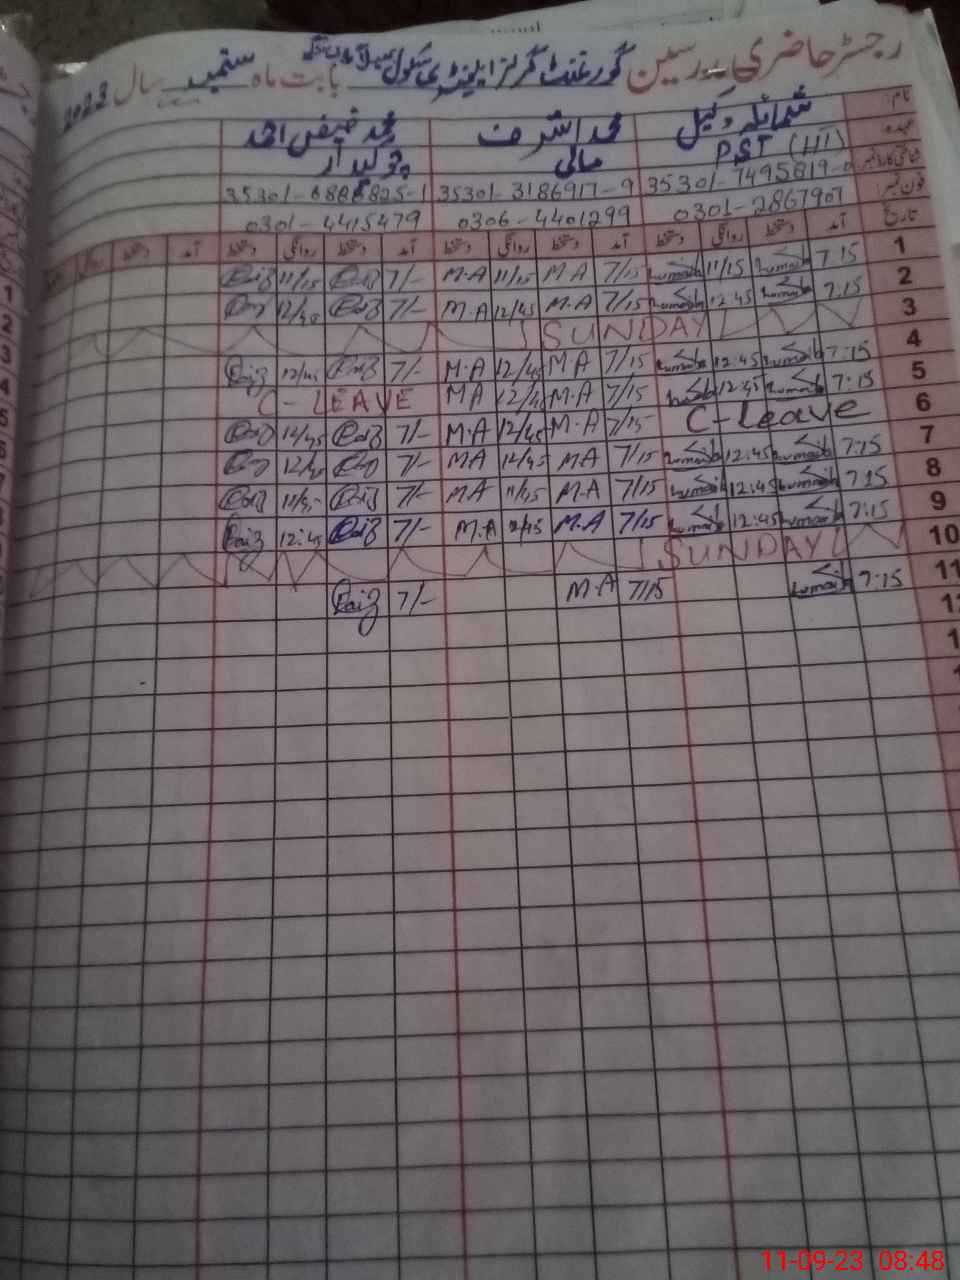 رجسٹر حاضری مدرسین گورنمنٹ گرلز ایلیمنٹری سکول بابت ماہ ستمبر سال 2023
نام: شمائلہ وکیل محمد اشرف محمد فیض احمد
عہدہ: PST (HT) مالی چوکیدار
شناختی کارڈ نمبر 35301-7495819-0 35301-3186917-9
فون نمبر: 0301-2867907 0306-4401299 0301-4415479
تاریخ آمد دستخط روانگی دستخط آمد دستخط روانگی دستخط آمد دستخط روانگی دستخط آمد دستخط
1 7:15 11/15 7/15 M.A 11/15 M.A 7/- Faiz 11/15 Faiz
2 7:15 12:45 7/15 M.A 12/45 M.A 7/- Faiz 12/45
3 SUNDAY
4 7:15 12:45 7/15 M.A 12/45 M.A 7/- Faiz 12/45 Faiz
5 7:15 12:45 7/15 M.A 12/45 MA C-LEAVE
6 C-Leave 7/15 M.A 12/45 M.A 7/- Faiz 12/45 Faiz
7 7:15 12:45 7/15 M.A 12/45 MA 7/- 12/45
8 7:15 12:45 7/15 M.A 11/45 MA 7/- Faiz Faiz
9 7:15 12:45 7/15 M.A M.A 7/- Faiz 12:45 Faiz
10 SUNDAY
11 7:15 7/15 M.A 7/- Faiz
11-09-23 08:48